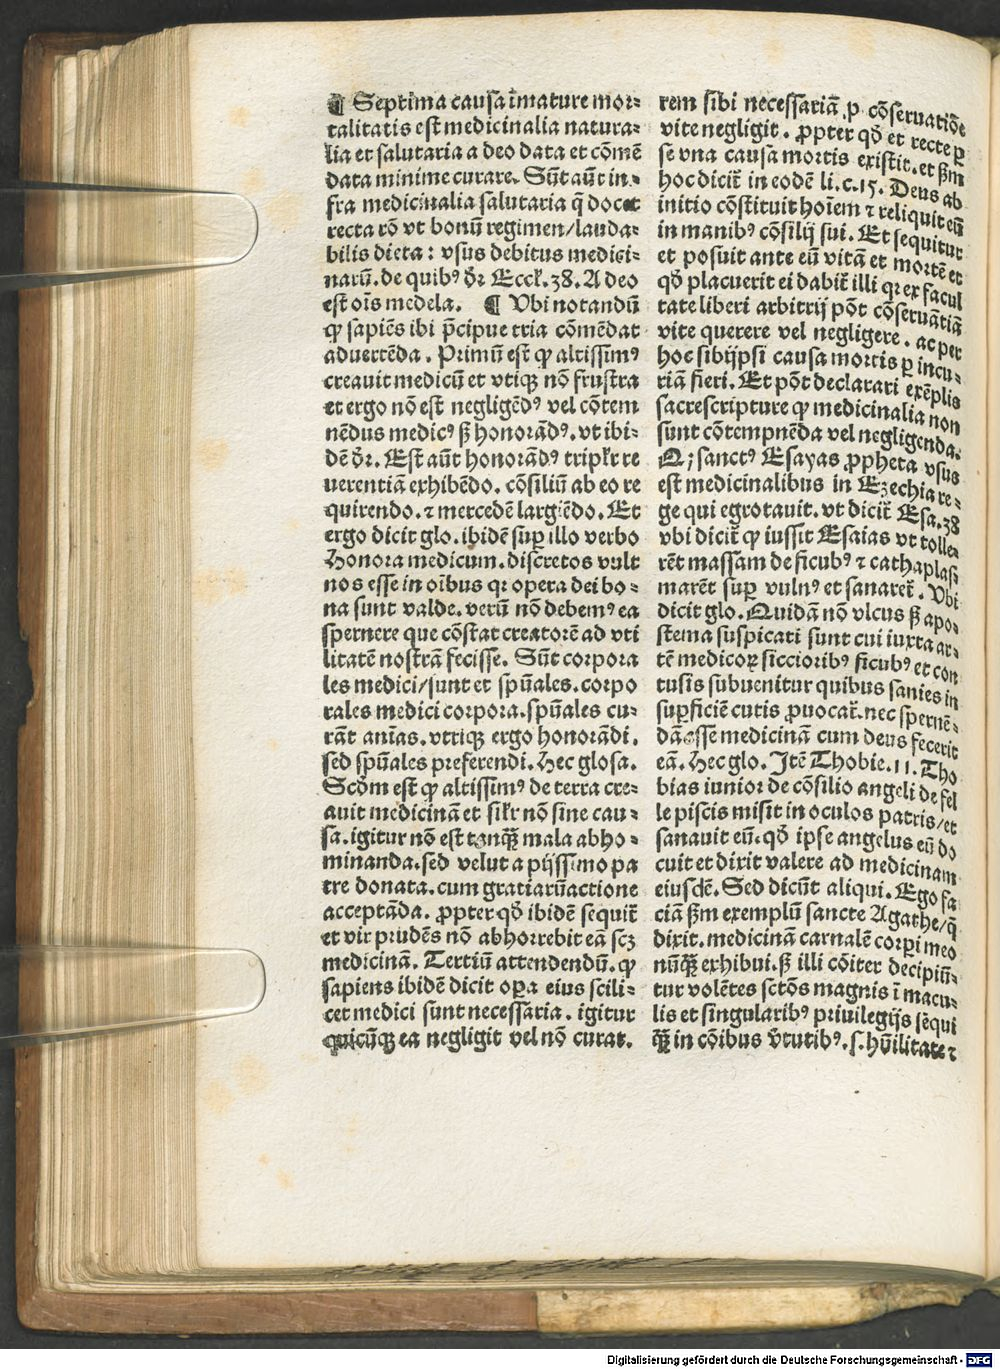 ¶ Septima causa ĩmature mor⸗
talitatis est medicinalia natura⸗
lia et salutaria a deo data et cõmẽ
data minime curare. Sũt aũt in⸗
fra medicinalia salutaria q̃ docet
recta rõ vt bonũ regimen/lauda⸗
bilis dieta: vsus debitus medici⸗
narũ. de quibꝰ dr̃ Ecck̃. 38. A deo
est oĩs medela. ¶ Vbi notandũ
ꝙ sapiẽs ibi p̃cipue tria cõmẽdat
aduertẽda. Primũ est ꝙ altissimꝰ
creauit medicũ et vtiqꝫ nõ frustra
et ergo nõ est negligẽdꝰ vel cõtem
nẽdus medicꝰ sꝫ honorãdꝰ. vt ibi⸗
dẽ dr̃. Est aũt honorãdꝰ triplr̃ re
uerentiã exhibẽdo. cõsiliũ ab eo re
quirendo. ⁊ mercedẽ largiẽdo. Et
ergo dicit glo. ibidẽ suꝑ illo verbo
Honora medicum. discretos vult
nos esse in oĩbus qꝛ opera dei bo⸗
na sunt valde. verũ nõ debemꝰ ea
spernere que cõstat creatorẽ ad vti
litatẽ nostrã fecisse. Sũt corpora
les medici/sunt et spũales. corpo
rales medici corpora. spũales cu⸗
rãt anĩas. vtriqꝫ ergo honorãdi.
sed spũales preferendi. Hec glosa.
Scd̃m est ꝙ altissimꝰ de terra cre⸗
auit medicinã et silr̃ nõ sine cau⸗
sa. igitur nõ est tanqꝫ̃ mala abho⸗
minanda. sed velut a pijssimo pa
tre donata. cum gratiarũactione
acceptãda. ꝓpter qd̃ ibidẽ sequit̃
et vir prudẽs nõ abhorrebit eã scꝫ
medicinã. Tertiũ attendendũ. ꝙ
sapiens ibidẽ dicit oꝑa eius scili⸗
cet medici sunt necessaria. igitur
quicũqꝫ ea negligit vel nõ curat.
rem sibi necessariã ꝓ cõseruatiõe
vite negligit. ꝓpter qd̃ et recte ꝑ
se vna causa mortis existit. et sꝫm
hoc dicit̃ in eodẽ li. c. 15. Deus ab
initio cõstituit hoĩem ⁊ reliquit eũ
in manibꝰ cõsilij sui. Et sequitur
et posuit ante eũ vitã et mortẽ et
qd̃ placuerit ei dabit̃ illi qꝛ ex facul
tate liberi arbitrij põt cõseruãtiã
vite querere vel negligere. ac per
hoc sibijpsi causa mortis ꝑ incu⸗
riã fieri. Et põt declarari exẽplis
sacrescripture ꝙ medicinalia non
sunt cõtempnẽda vel negligenda.
Qꝫ sanctꝰ Esayas ꝓpheta vsus
est medicinalibus in Ezechia re⸗
ge qui egrotauit. vt dicit̃ Esa. 38
vbi dicit̃ ꝙ iussit Esaias vt tolle⸗
rẽt massam de ficubꝰ ⁊ cathaplas⸗
marẽt suꝑ vulnꝰ et sanaret̃. Vbi
dicit glo. Quidã nõ vlcus sꝫ apo⸗
stema suspicati sunt cui iuxta ar⸗
tẽ medicoꝝ siccioribꝰ ficubꝰ et con
tusis subuenitur quibus sanies in
suꝑficiẽ cutis ꝓuocat̃. nec spernẽ⸗
dã esse medicinã cum deus fecerit
eã. Hec glo. Itẽ Thobie. 11. Tho
bias iunior de cõsilio angeli de fel
le piscis misit in oculos patris/et
sanauit eũ. qd̃ ipse angelus eũ do
cuit et dixit valere ad medicinam
eiusdẽ. Sed dicũt aliqui. Ego fa
ciã sꝫm exemplũ sancte Agathe/q̃
dixit. medicinã carnalẽ corꝑi meo
nũqꝫ̃ exhibui. sꝫ illi cõiter decipiũ⸗
tur volẽtes sctõs magnis ĩ macu⸗
lis et singularibꝰ priuilegijs sẽqui
qꝫ̃ in cõibus v̾tutibꝰ. s. hũilitate ⁊
Digitalisierung gefördert durch die Deutsche Forschungsgemeinschaft - DFG